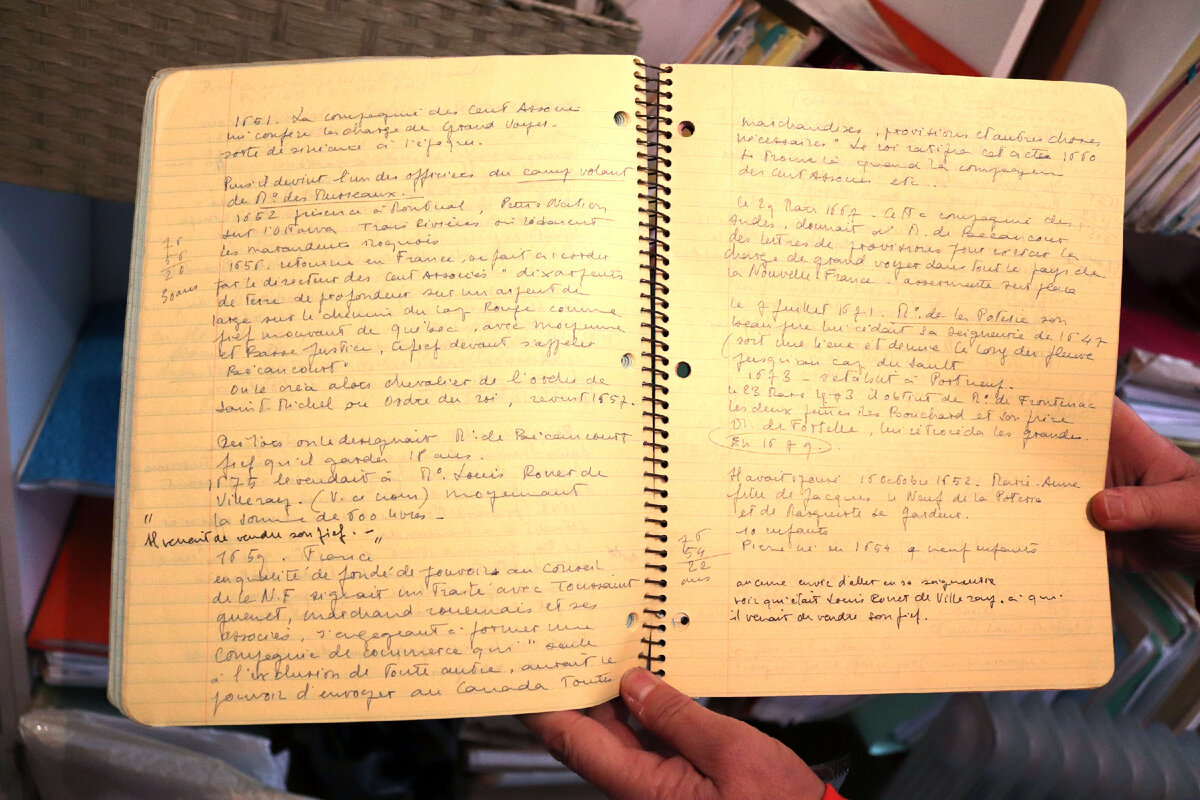 1651. La compagnie des Cent Associés
lui confère les charge de Grand Voyer.
sorte de sinécure à l'époque.
Puis il devient l'un des officiers du camp volant
de Mr. des Musseaux.
1652 présence à Montréal, Petite Nation
sur l'Ottawa Trois Rivières où rôdaient
les maraudeurs iroquois
1656. retourne en France, se fait accorder
par le directeur des Cent Associés "dix arpents
de terre de profondeur sur un arpent de
large sur le chemin du Cap Rouge comme
fief mouvant de Québec, avec moyenne
et Basse Justice, ce fief devant s'appeler
Bécancourt"
On le créa alors chevalier de l'ordre de
Saint Michel ou Ordre du roi, revint 1657.
76
56
20
30 ans
Dès lors on le désignait Mr. de Bécancourt
fief qu'il garda 18 ans.
1675 le vendait à Mr. Louis Rouer de
Villeray. (V. ce nom) moyennant
la somme de 600 livres -
"Il venait de vendre son fief. - "
1659. France
en qualité de fondé de pouvoirs au Conseil
de la N.F signait un Traité avec Toussaint
quenet, marchand rouennais et ses
Associés, s'engageant à former une
Compagnie de commerce qui "seule
à l'exclusion de toute autre, aurait le
pouvoir d'envoyer au Canada Toutes
marchandises, provisions et autres choses
nécessaires" Le roi ratifia cet acte 1660
quand la compagnie
des Cent Associés etc..
Le 29 Mars 1667 - Cette compagnie des
Indes, donnait à M. de Bécancourt
des lettres de provisions pour exercer la
charge de grand voyer dans tout le pays de
la Nouvelle France - assermenté sur place
Le 7 juillet 1671. Mr. de la Poterie son
beau père lui cédait sa seigneurie de 1647
(soit une lieue et demie le long du fleuve
jusqu'au cap du Sault
1673 - s'établit à Portneuf.
le 23 Mars 1673 il obtint de Mr. de Frontenac
les deux petites Iles Bouchard et son frère
M. de Fortelle, lui rétrocéda les grandes.
En 1679.
Il avait épousé 16 octobre 1652. Marie-Anne
fille de Jacques le Neuf de la Poterie
et de Marguerite Le Gardeur.
10 enfants
Pierre né en 1654 9 neuf enfants
76
54
22
ans
aucune envie d'aller en sa seigneurie
voir qu'était Louis Rouer de Villeray, à qui
il venait de vendre son fief.